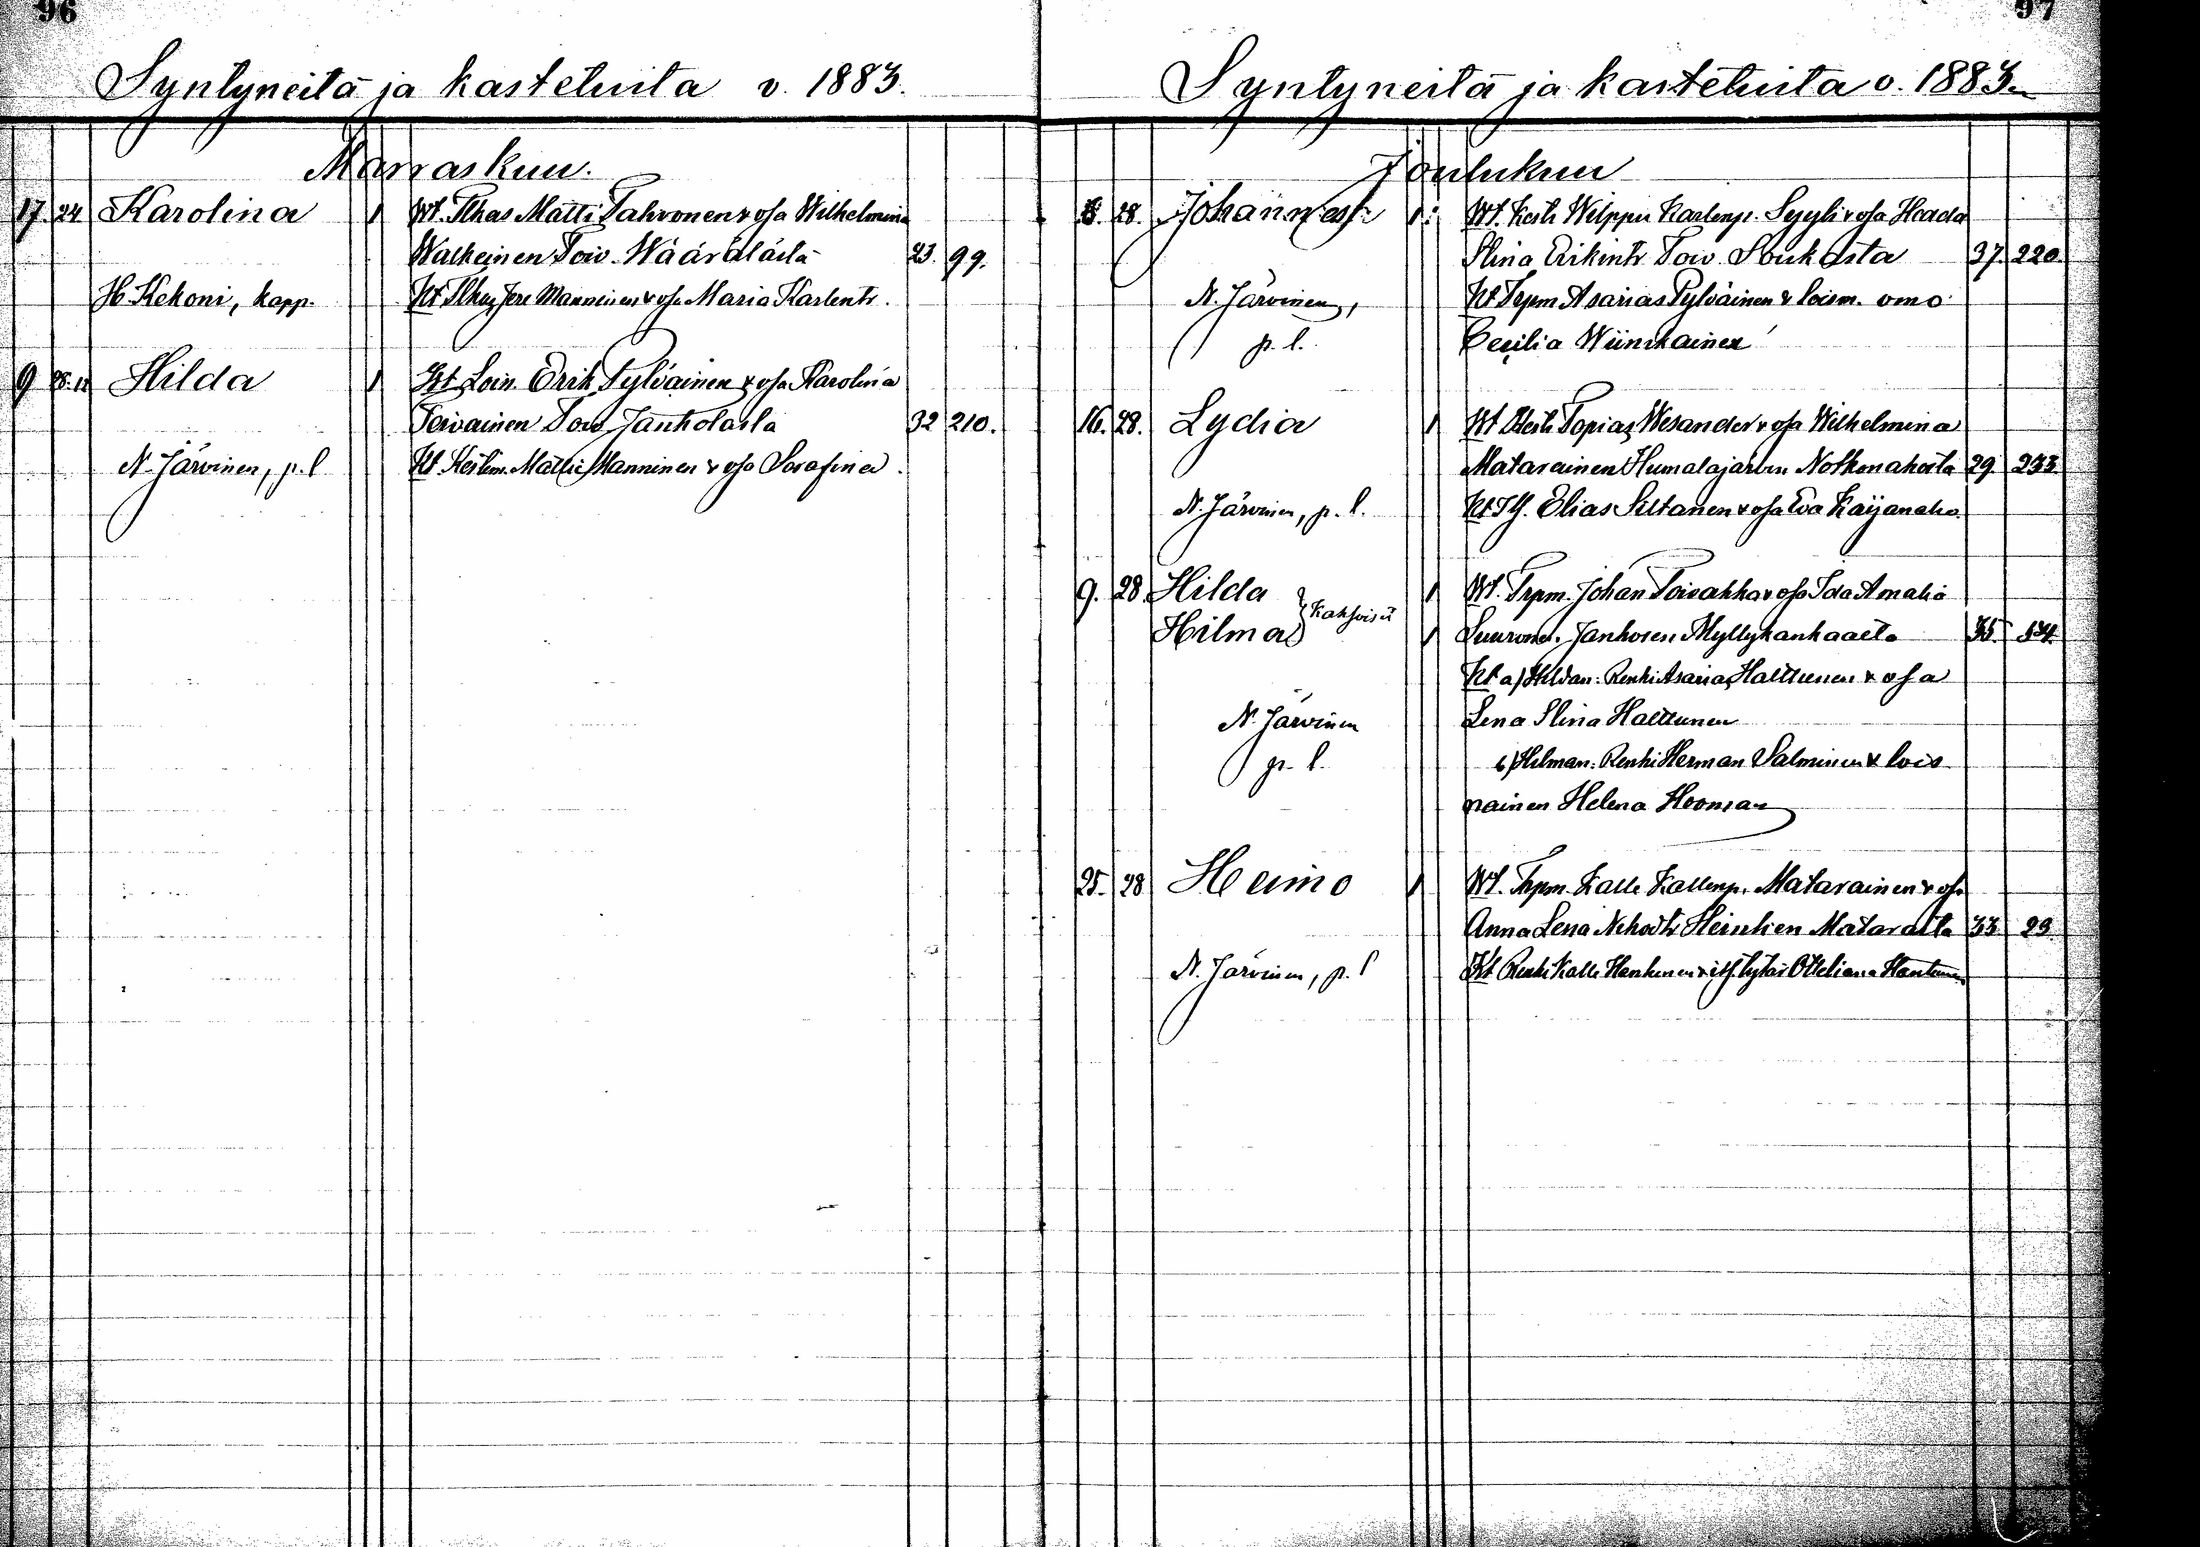 96
Syntyneitä ja kasteluita v. 1883.
Marraskuu.
17. 24 Karolina 1 Wt. Tlhas Matti Tahvonen & vsa Wilhelmina
Walkeinen Toiv. Wäärälästä 23. 99.
H. Kekoni, kapp. Kt Tlhas Jere Manninen & vsa Maria Karlentr.
9 28.12 Hilda 1 Wt. Lois. Erik Pylväinen & vsa Karolina
Toiv. Janholasta 32 210.
N. Järvinen, p. l Kt. Kestim. Matti Manninen & vsa Serafina.
97
Syntyneitä ja kasteluita v. 1883.
Joulukuu
8. 28. Johannes 1 Wt. Kesti Wilppu Karlenp. Syyli & vsa Hedda
Stina Erikintr Toiv Soukosta 37. 220.
N. Järvinen, Kt Trpm Asarias Pylväinen & loism. vmo
p. l. Cecilia Wiinikainen
16. 28. Lydia 1 Wt Topias Wesander & vsa Wilhelmina
Matarainen Humalajärven Notkonahosta 29. 233.
N. Järvinen, p. l. Kt Elias Siltanen & vsa Eva Kaijanaho.
9. 28. Hilda } Kaksoiset 1 Wt. Trpm. Johan Toivakka & vsa Ida Amalia
Hilma 1 Suuronen. Janhosen Myllykankaalta 35. 54.
Kt a) Hildan: Renki Asarias Halttunen & vsa
N. Järvinen Lena Stina Halttunen
p. l. b) Hilman: Renki Herman Salminen & lois
nainen Helena
25. 28 Heimo 1 Wt. Trpm. Kalle Kallenp. Matarainen & vsa
Anna Lena 33 29.
N. Järvinen, p. l Kt Renki Kalle & its. tytär